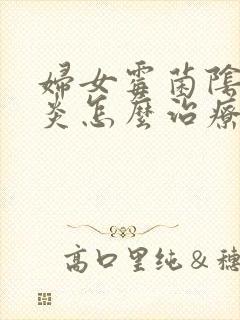 婦女霉菌陰
炎怎麼治療
高口里纯＆穗